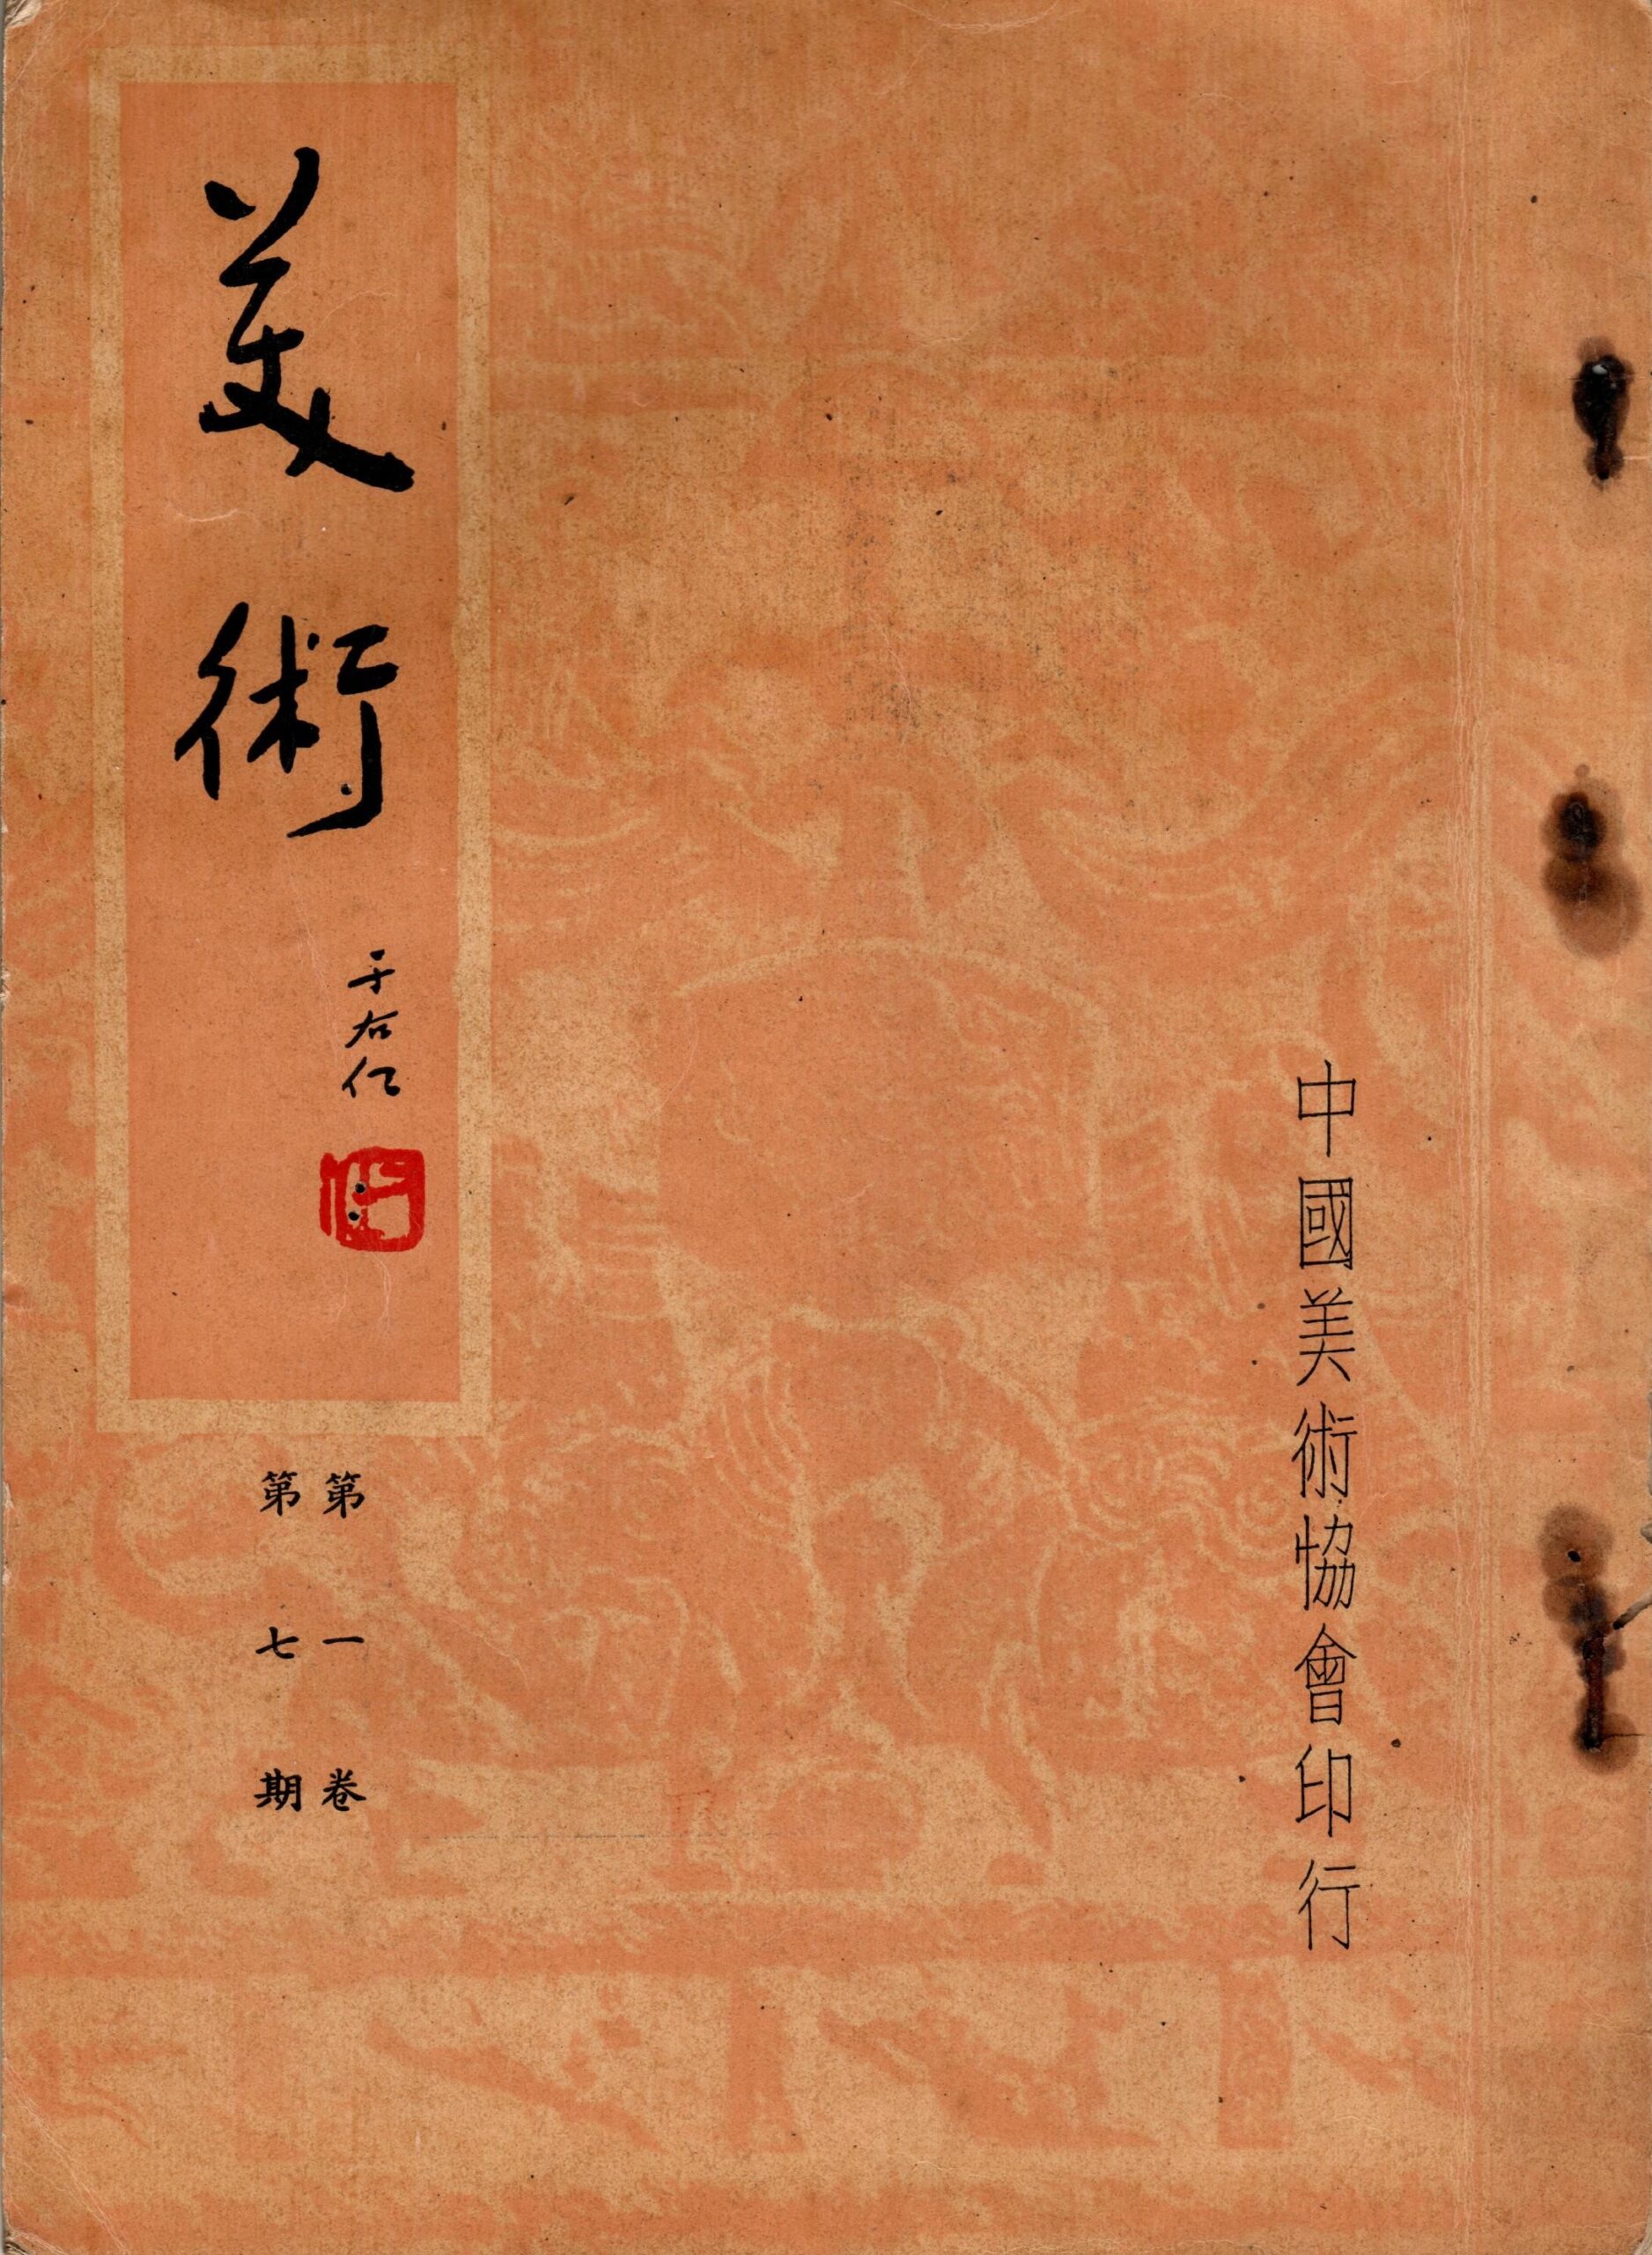 美術
于右任
第一卷
第七期
中國美術恊會印行